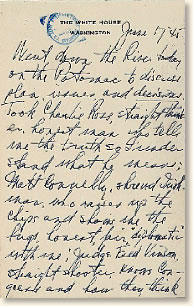 THE WHITE HOUSE
WASHINGTON
June 17 '45
Went down the River today
on the Potomac to discuss
plans, issues and decisions.
Took Charlie Ross, straight think-
er, honest man, who tells
me the truth so I under-
stand what he means;
Matt Connelly, shrewd Irish-
man, who raises up the
chips and shows me the
bugs, honest, fair, diplomatic
with me; Judge Fred Vinson,
straight shooter, knows Con-
gress and how they think